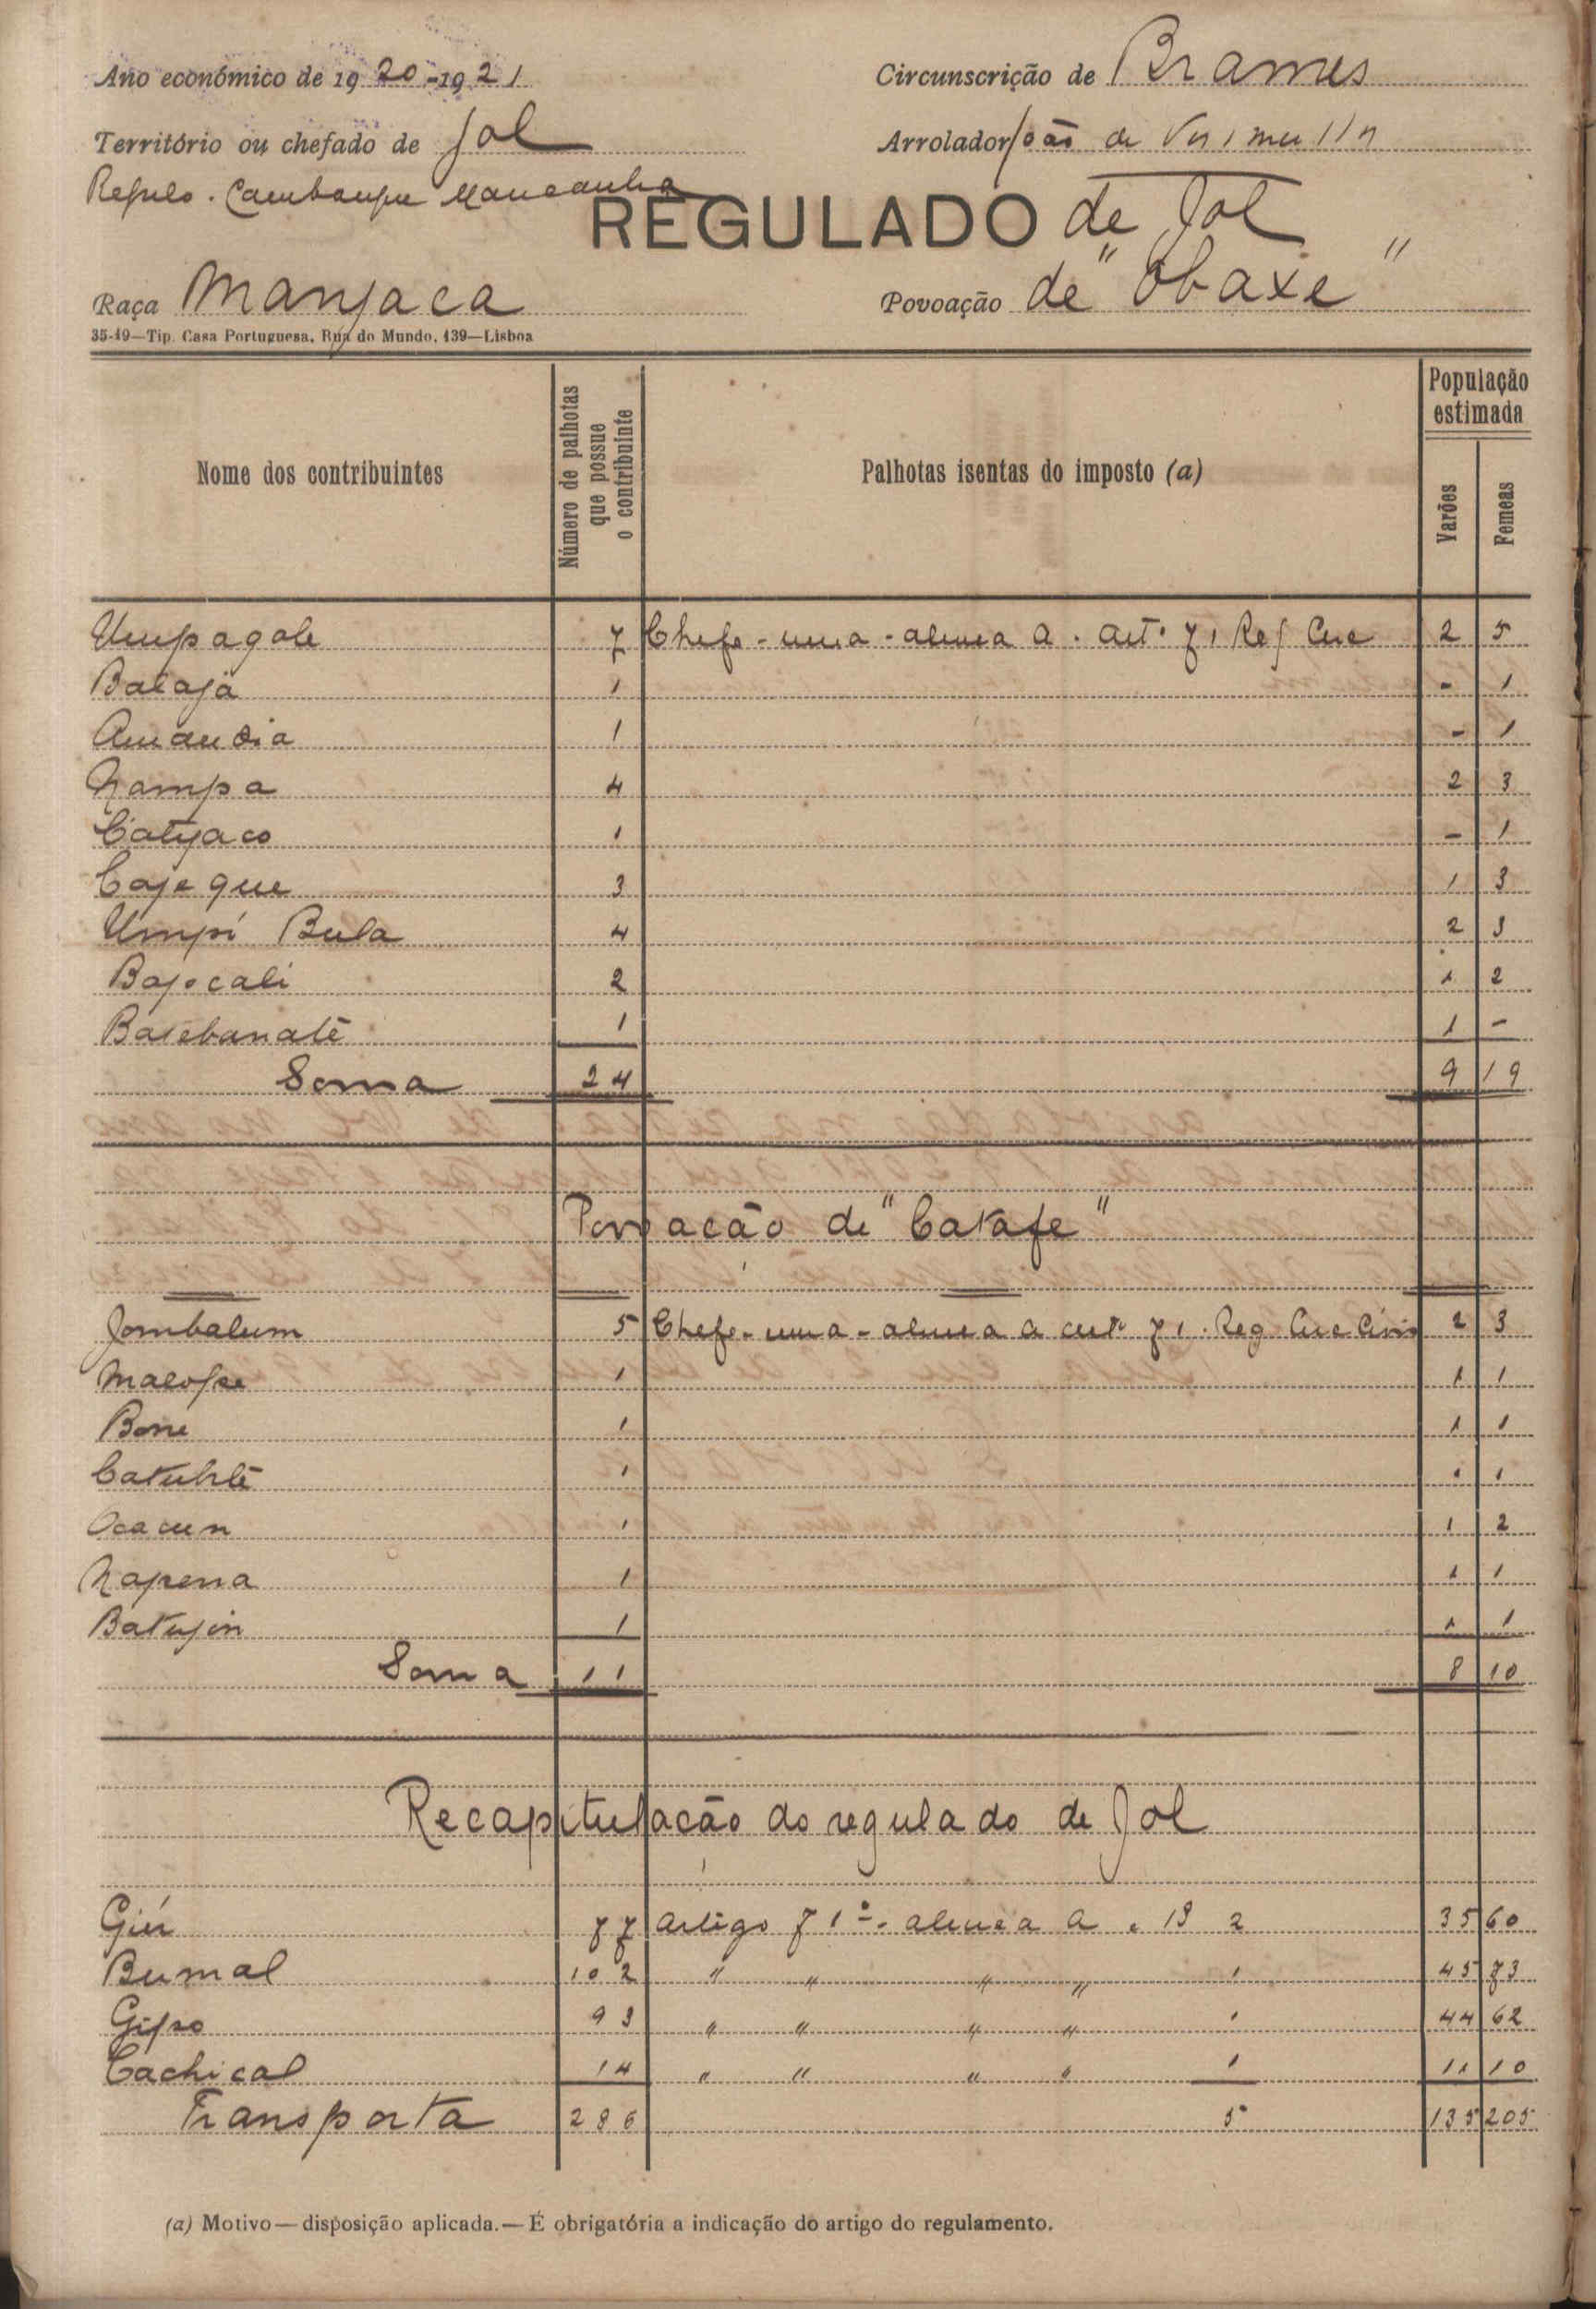 Ano económico de 1920-1921
Circunscrição de Brames
Território ou chefado de Jol
Arrolador João de
Regulo. Mancanha
REGULADO de Jol
Raça Manjaca
Povoação de "Obaxe"
35-19—Tip. Casa Portuguesa, Rua do Mundo, 139—Lisboa
Nome dos contribuintes
Número de palhotas que possue o contribuinte
Palhotas isentas do imposto (a)
População estimada
Varões
Femeas
Umpagole 7 Chefe - uma - alinea a. art. 71 Reg Circ 2 5
Bacaja 1 - 1
Amandia 1 - 1
Nampa 4 2 3
Catyaco 1 - 1
Cajeque 3 1 3
Umpi Bula 4 2 3
Bajocali 2 1 2
Basebanatê 1 1 -
Soma 24 9 19
Povoação de "Catafe"
Jombalum 5 Chefe - uma - alinea a art. 71. Reg Circ Civis 2 3
Malofe 1 1 1
Bone 1 1 1
Catuhlê 1 1 1
Ocacun 1 1 2
Napena 1 1 1
Batujin 1 1 1
Soma 11 8 10
Recapitulação do regulado de Jol
77 artigo 71º - alinea a 2 35 60
Bumal 102 " " " " 1 45 73
Gipo 93 " " " " 1 44 62
Cachical 14 " " " " 1 11 10
Transporta 286 5 135 205
(a) Motivo — disposição aplicada. — É obrigatória a indicação do artigo do regulamento.